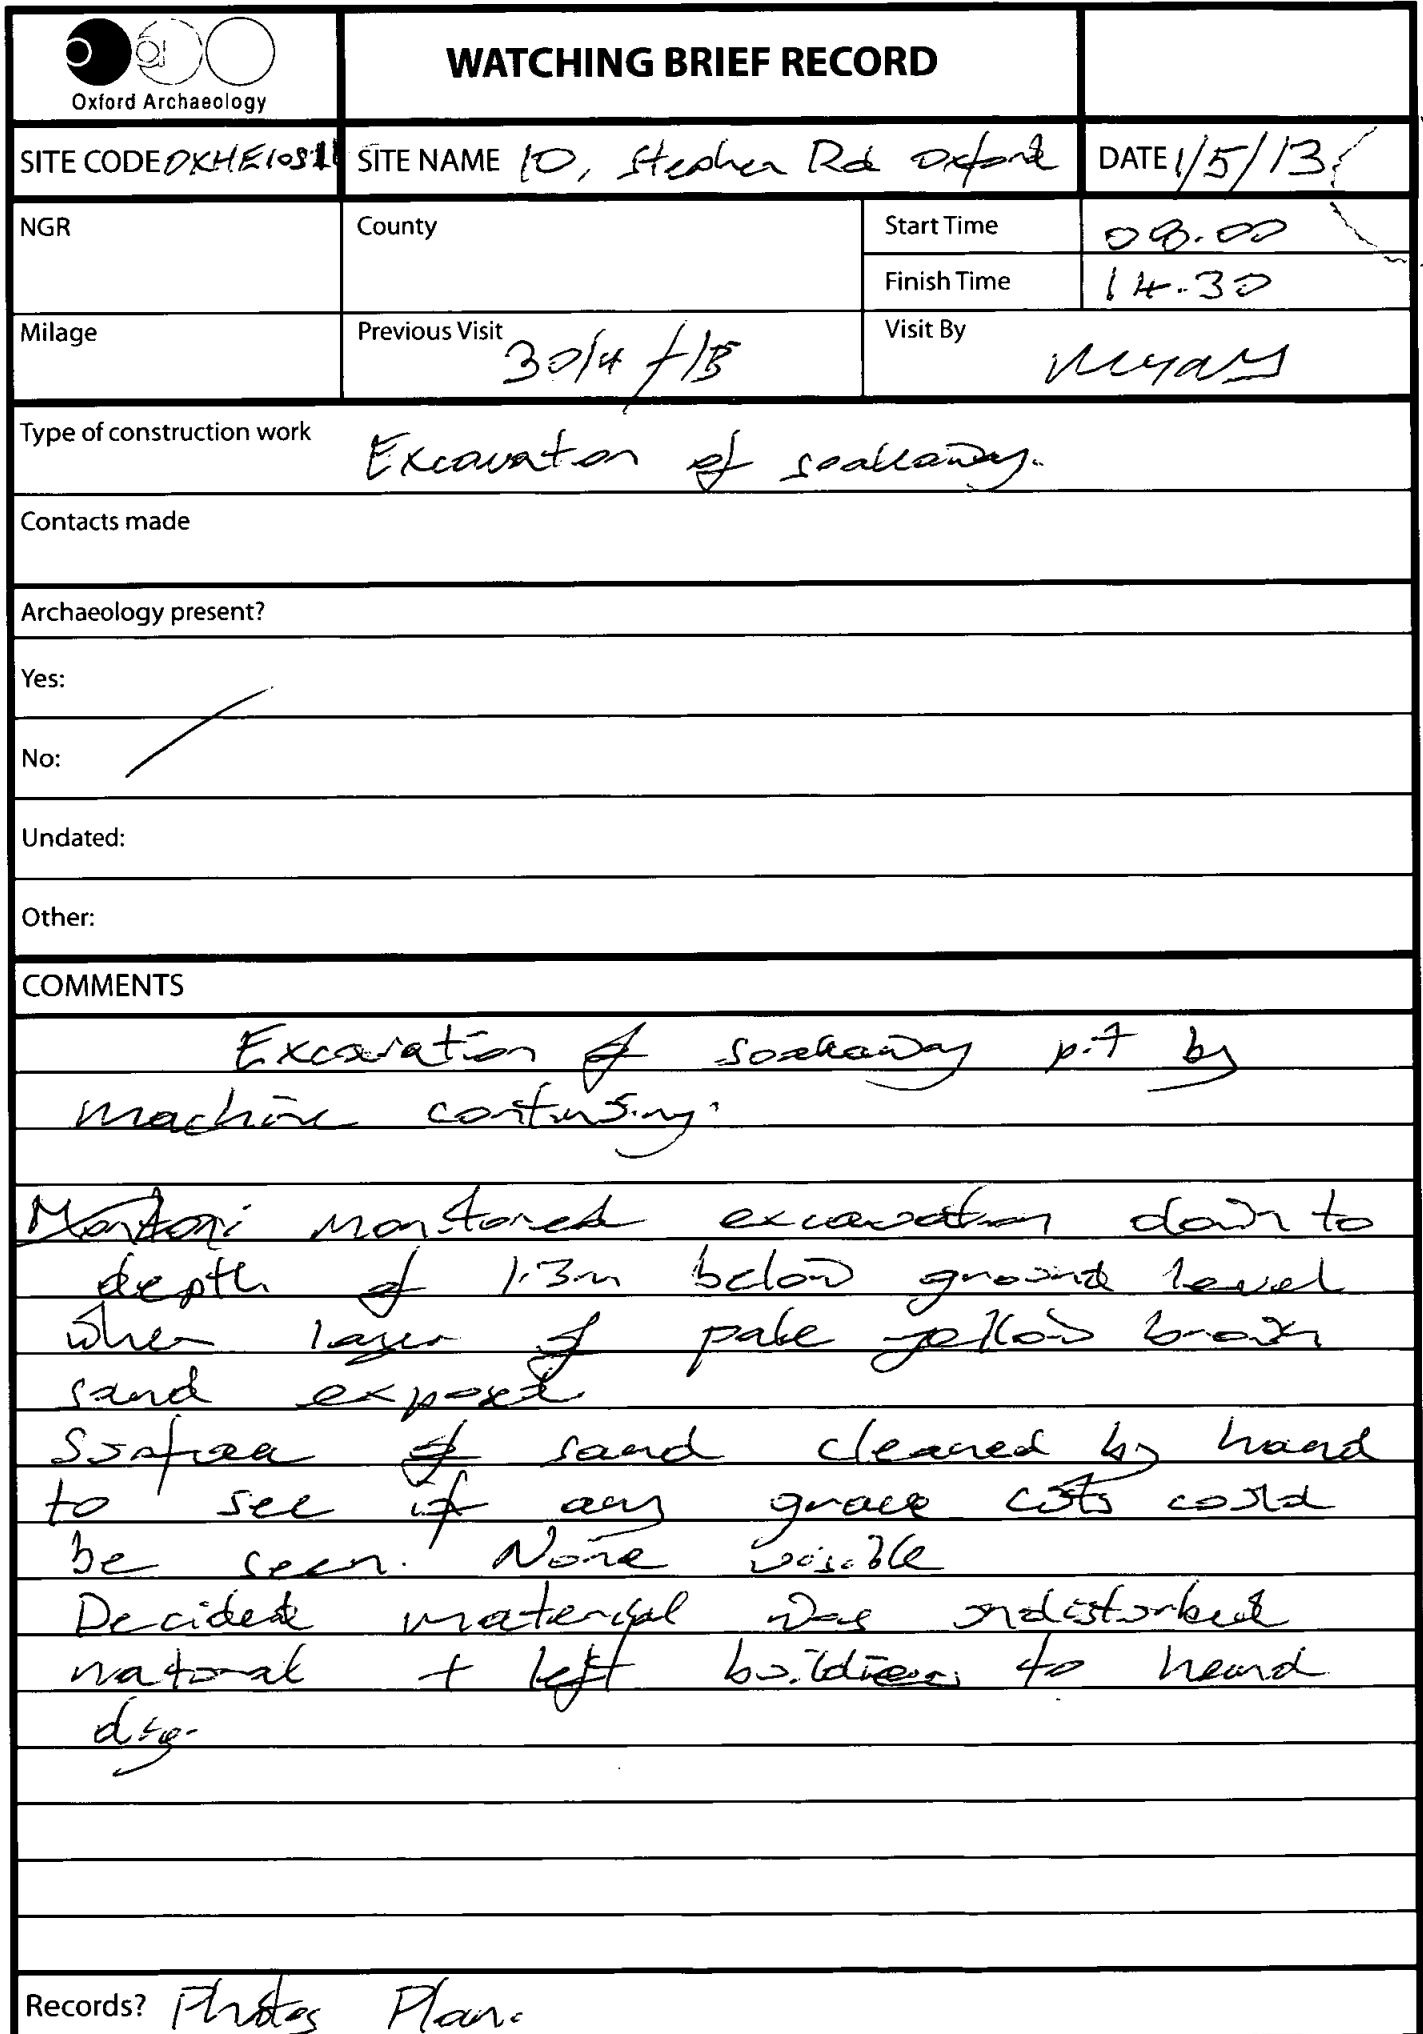 Oxford Archaeology
WATCHING BRIEF RECORD
SITE CODE
SITE NAME 10, Stephen Rd Oxford
DATE 1/5/13
NGR
County
Start Time 08.00
Finish Time 14.30
Milage
Previous Visit 30/4/13
Visit By
Type of construction work Excavation of soakaway.
Contacts made
Archaeology present?
Yes:
No: /
Undated:
Other:
COMMENTS
Excavation of soakaway pit by
machine continuing.
monitored excavation down to
depth of 1.3m below ground level
when layer of pale yellow brown
sand exposed
Surface of sand cleaned by hand
to see if any grave cuts could
be seen. None visible
Decided material was undisturbed
natural + left builders to hand
dig.
Records? Photos Plan.